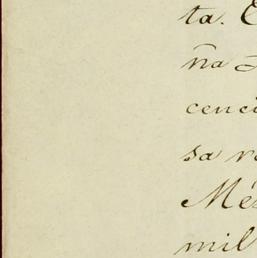 ta.
ña
cenci
sa
Mé
mil